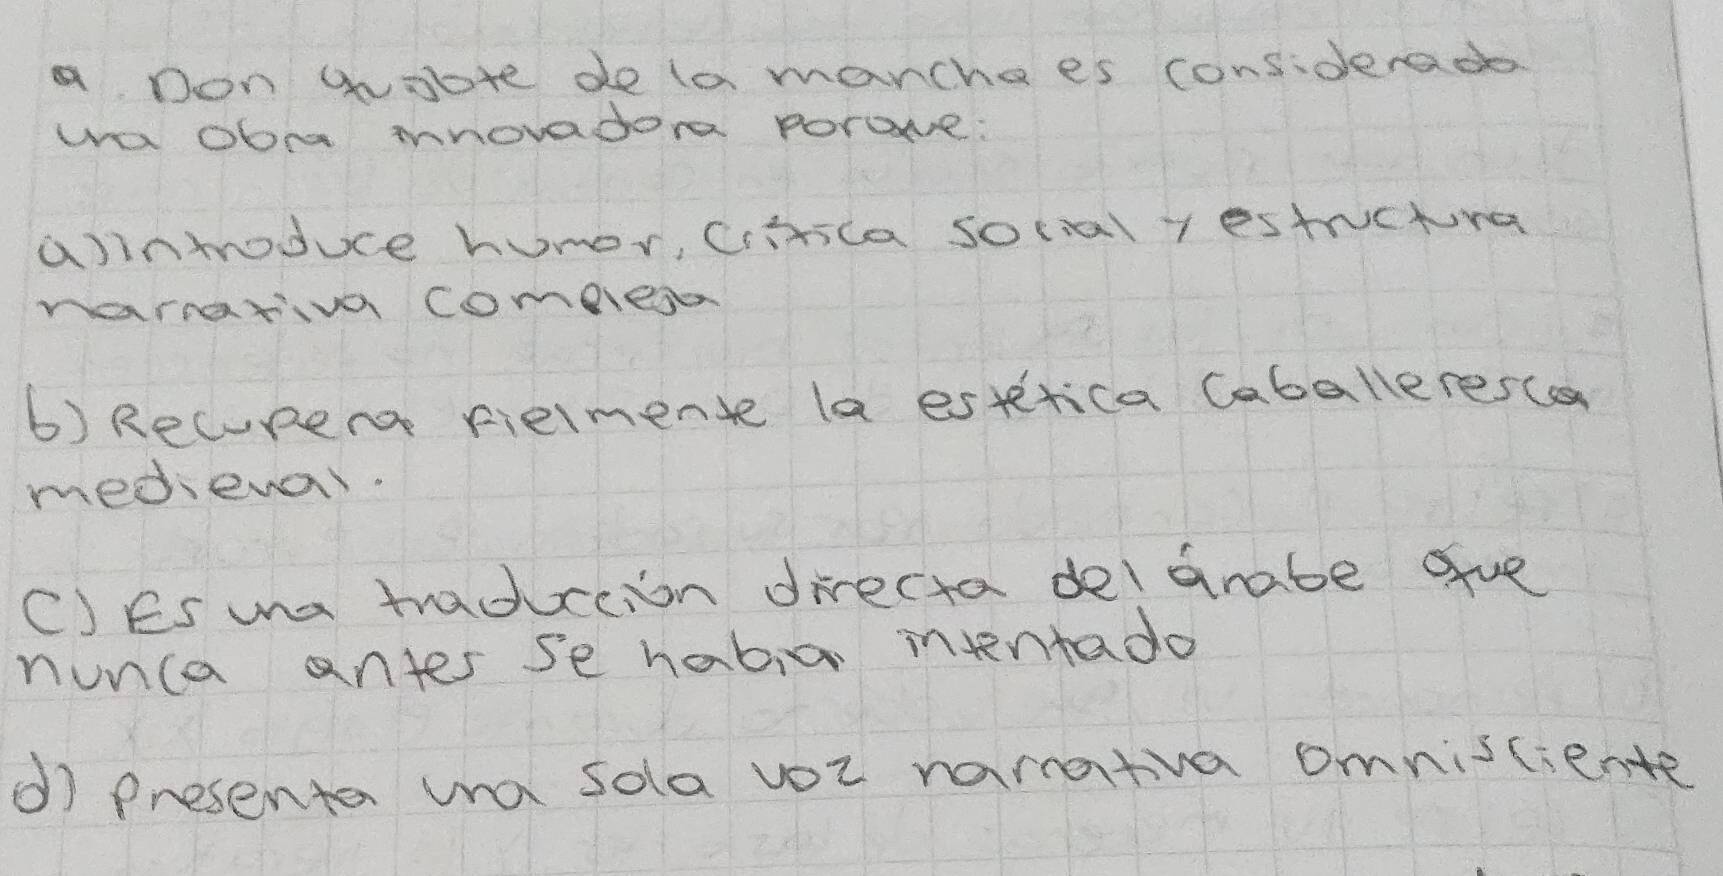 a. Don quijote de la mancha es considerada
una obra innovadora porque:
a) introduce humor, crítica social y estructura
narrativa compleja
b) Recupera fielmente la estética caballeresca
medieval.
c) Es una traducción directa del árabe que
nunca antes se había intentado
d) presenta una sola voz narrativa omnisciente